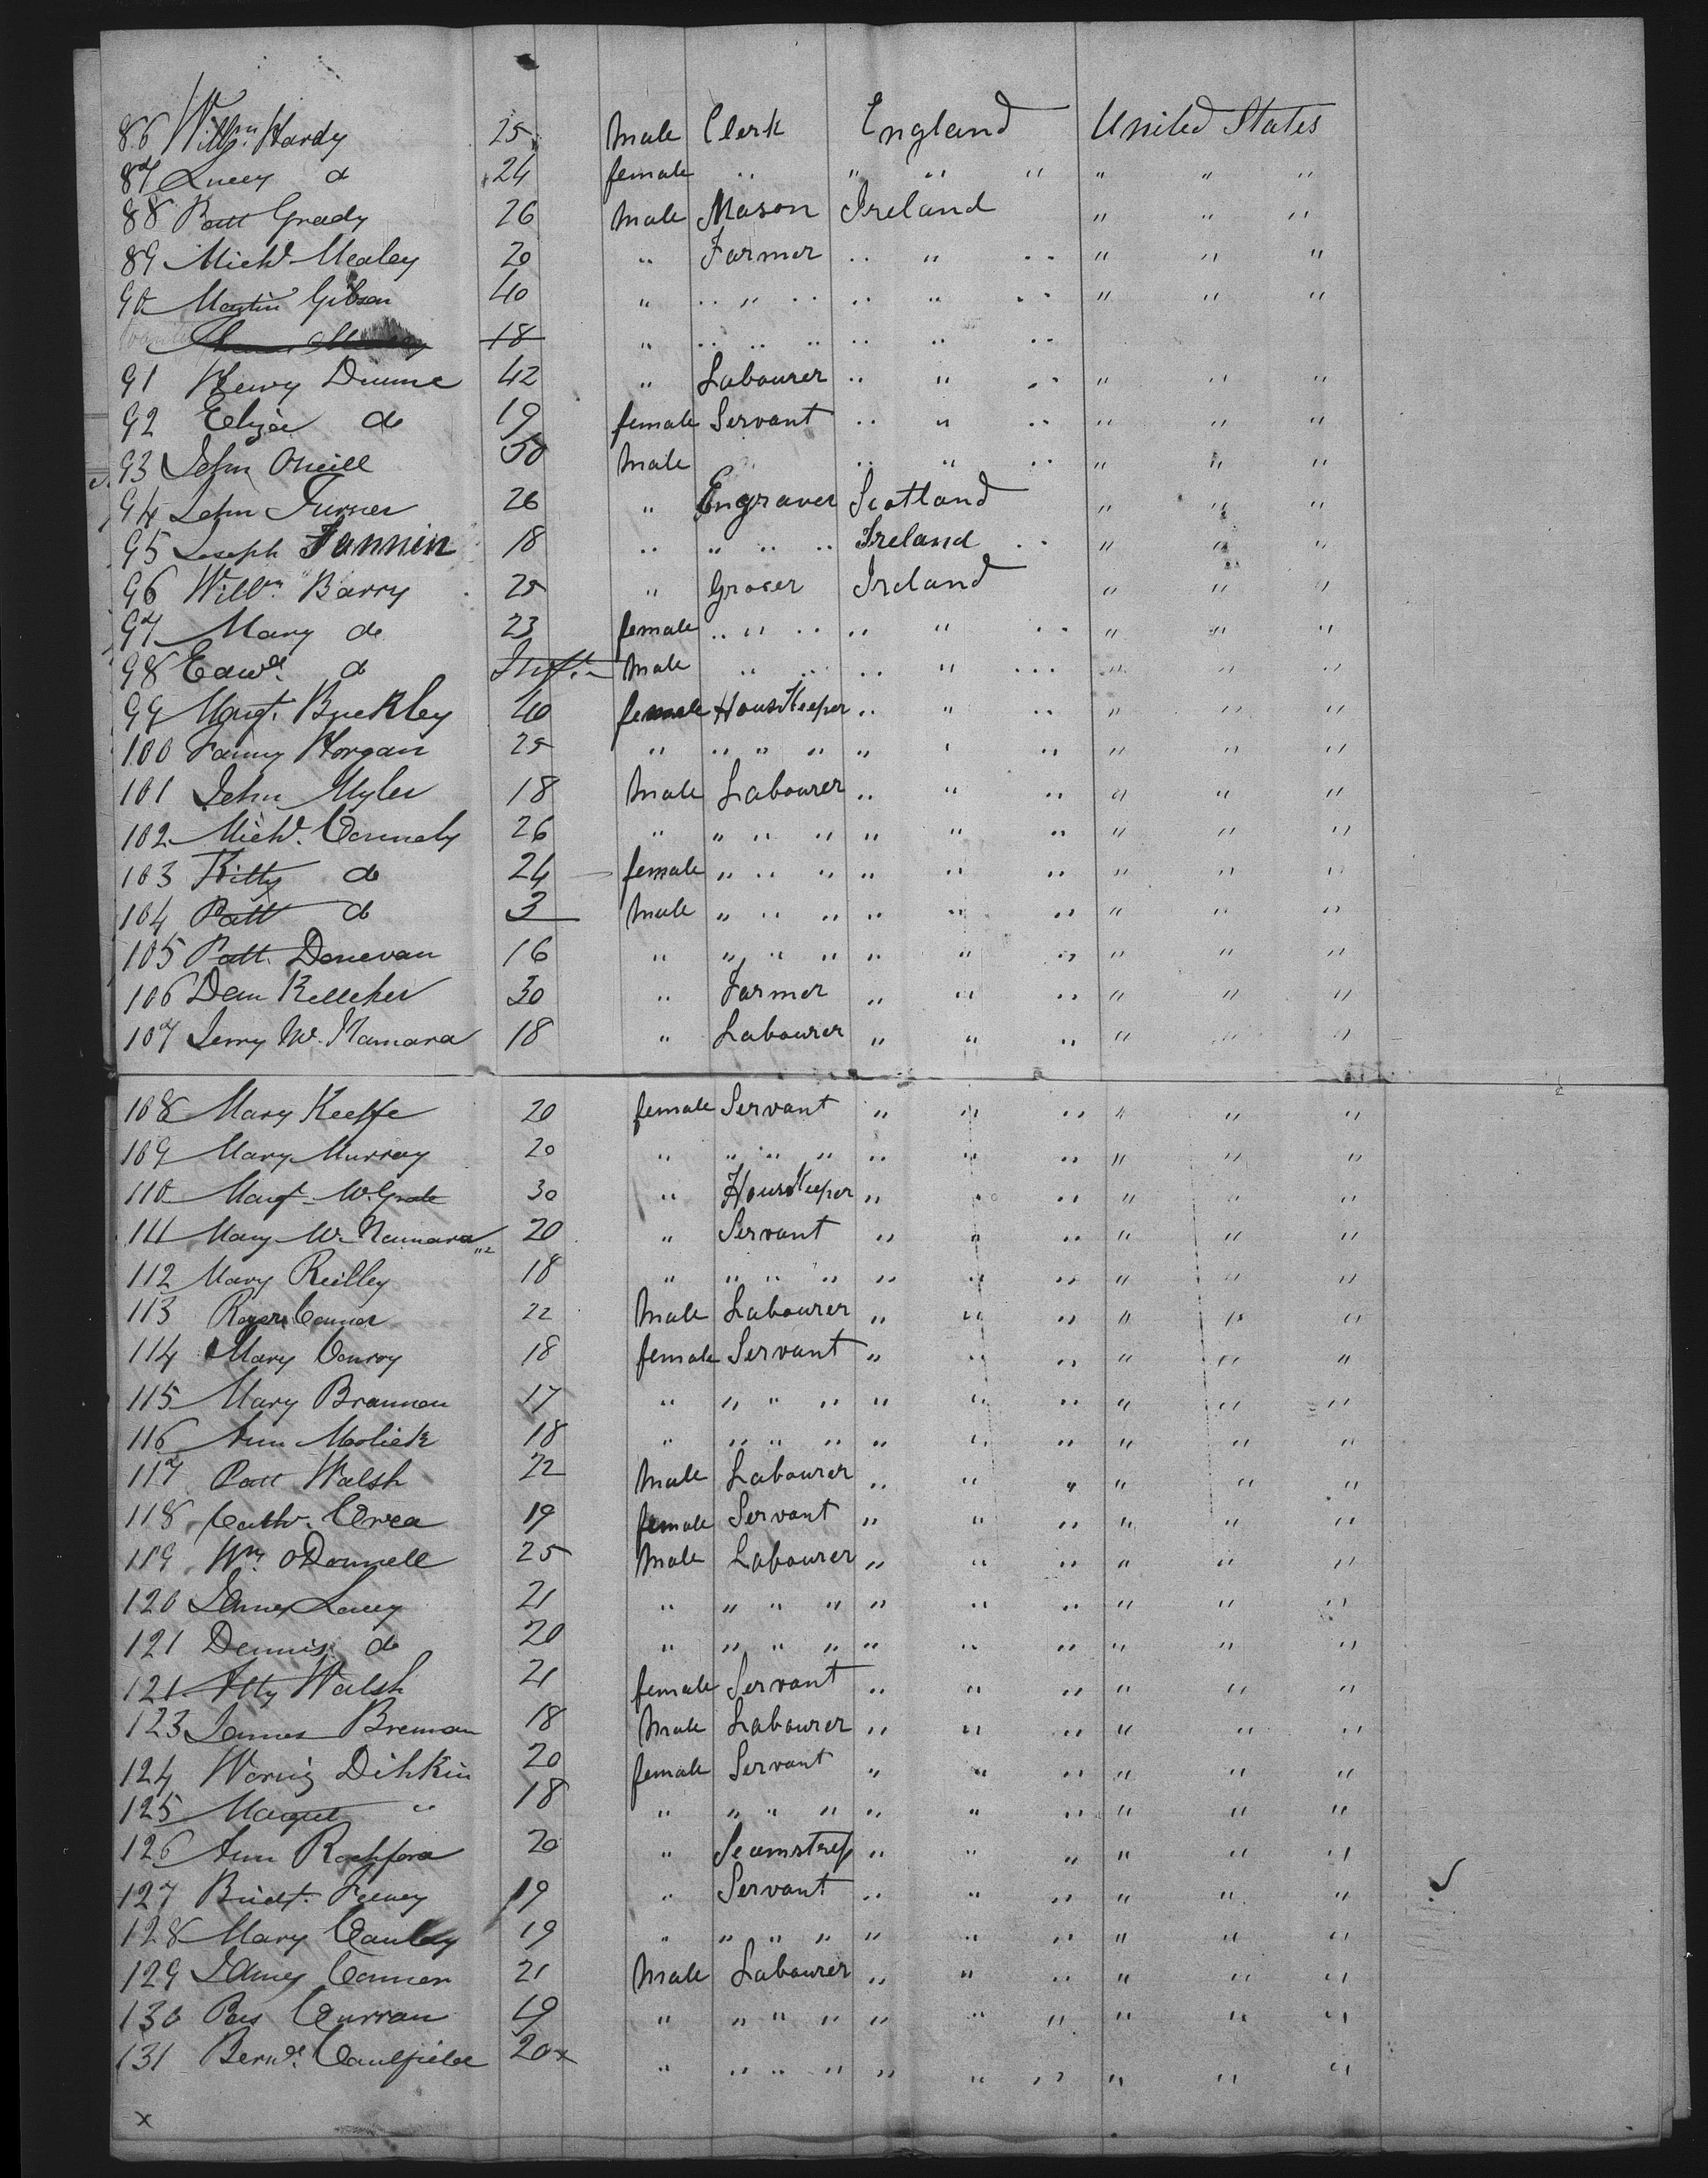 86 Willm. Hardy 25 Male Clerk England United States
87 Lucey do 24 female " " " " " " "
88 Patt Grady 26 Male Mason Ireland " " "
89 Michl. Mealey 20 " Farmer " " " " " "
90 Martin Gibson 40 " " " " " " " " " "
18 " " " " " " "
91 Henry Dunne 42 " Labourer " " " " " "
92 Eliza do 19 female Servant " " " " " "
93 John Oneill 50 Male " " " " " "
94 John Turner 26 " Engraver Scotland " " "
95 Joseph Fannin 18 " " " " Ireland " " " "
96 Willm. Barry 25 " Grocer Ireland " " "
97 Mary do 23 female " " " " " " " " "
98 Edwd. do Inft. Male " " " " " " " "
99 Margt. Buckley 40 female HousKeeper " " " " " "
100 Fanny Horgan 25 " " " " " " " " " "
101 John Myles 18 Male Labourer " " " " " "
102 Michl. Connely 26 " " " " " " " " " "
103 Kitty do 24 female " " " " " " " " "
104 Patt do 3 Male " " " " " " " " "
105 Patt. Donevan 16 " " " " " " " " " "
106 Dan Kelleher 30 " Farmer " " " " " "
107 Jerry Mc. Namara 18 " Labourer " " " " " "
108 Mary Keeffe 20 female Servant " " " " " "
109 Mary Murray 20 " " " " " " " " " "
110 Margt. McGrate 30 " HousKeeper " " " " " "
111 Mary Mc Namara 20 " Servant " " " " " "
112 Mary Reilley 18 " " " " " " " " " "
113 Roger Connor 22 Male Labourer " " " " " "
114 Mary Conroy 18 female Servant " " " " " "
115 Mary Brannon 17 " " " " " " " " " "
116 Ann 18 " " " " " " " " " "
117 Patt Walsh 22 Male Labourer " " " " " "
118 Cathr. Crea 19 female Servant " " " " " "
119 Wm. ODonnell 25 Male Labourer " " " " " "
120 James Lacey 21 " " " " " " " " " "
121 Dennis do 20 " " " " " " " " " "
121 Walsh 21 female Servant " " " " " "
123 James Brennan 18 Male Labourer " " " " " "
124 Dihkin 20 female Servant " " " " " "
125 Margret " 18 " " " " " " " " " "
126 Ann Rochford 20 " Seamstress " " " " " "
127 Bridt. Feeney 19 " Servant " " " " " "
128 Mary Cauley 19 " " " " " " " " " "
129 James Connor 21 Male Labourer " " " " " "
130 Curran 19 " " " " " " " " " "
131 Bernd. Caulfield 20 x " " " " " " " " " "
x